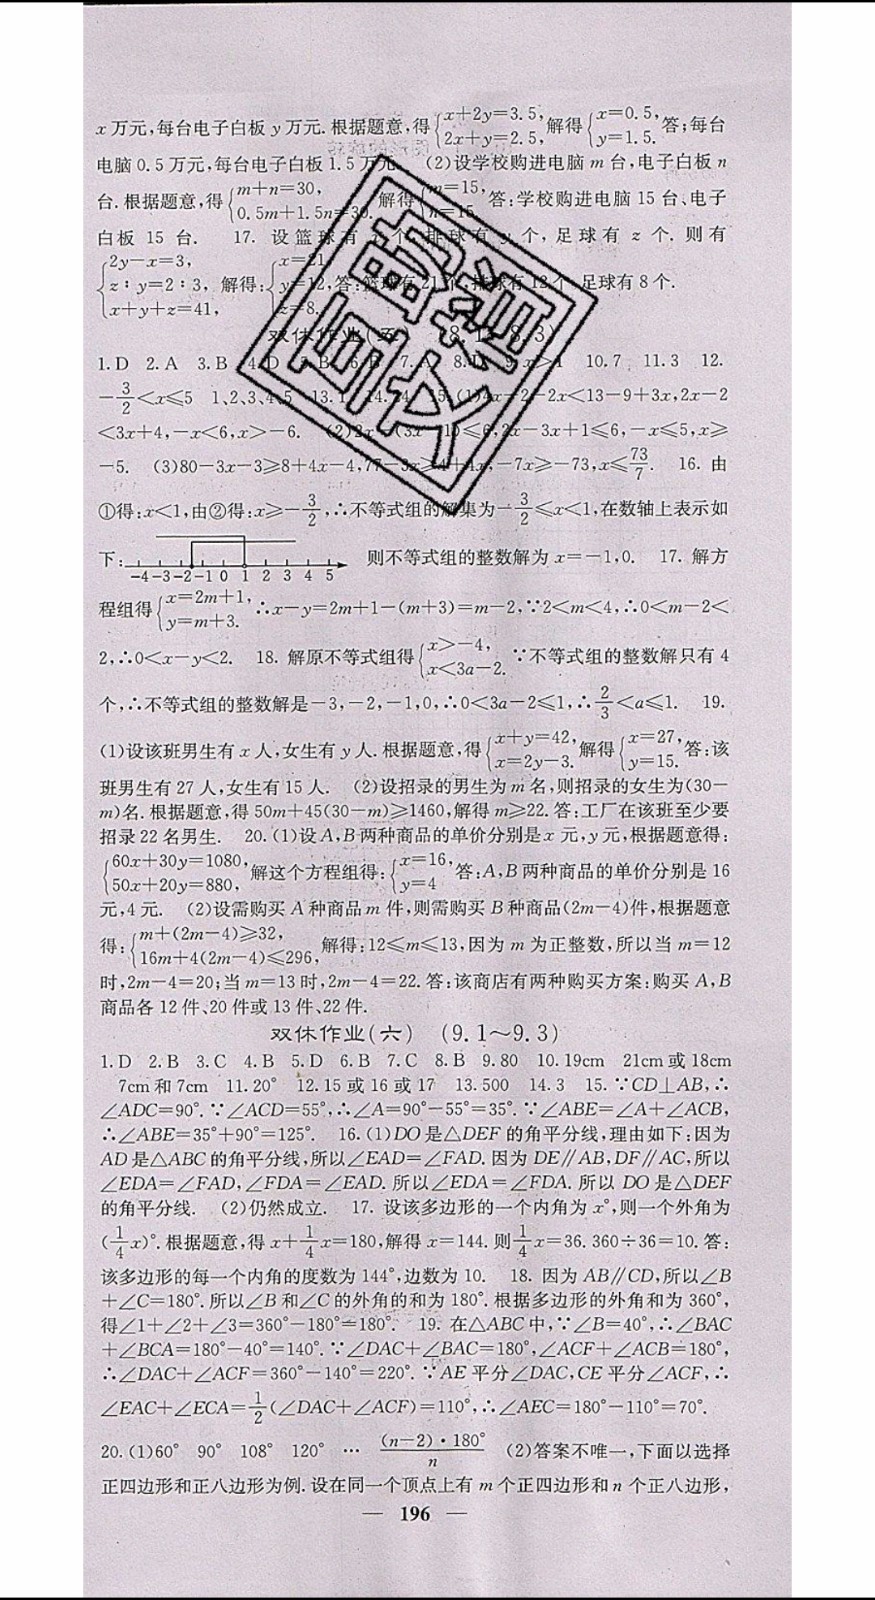 x万元,每台电子白板 y 万元.根据题意,得{x+2y=3.5, 2x+y=2.5, 解得{x=0.5, y=1.5. 答:每台
电脑 0.5 万元,每台电子白板 1.5 万元. (2)设学校购进电脑 m 台,电子白板 n
台.根据题意,得{m+n=30, 0.5m+1.5n=30. 解得{m=15, n=15. 答:学校购进电脑 15 台、电子
白板 15 台. 17. 设篮球有 个,排球有 y 个,足球有 z 个.则有
{2y-x=3, z∶y=2∶3, x+y+z=41, 解得:{x=21, y=12, z=8. 答:篮球有 21 个,排球有 12 个,足球有 8 个.
双休作业(五) (8.1~8.3)
1.D 2.A 3.B 4.D 5.B 6.B 7.A 8. 9.x>1 10.7 11.3 12.
-3/2<x≤5 1、2、3、4、5 13.1 14. 15.(1)4x-2-2x<13-9+3x,2x-2
<3x+4,-x<6,x>-6. (2)2x-(3x-1)≤6,2x-3x+1≤6,-x≤5,x≥
-5. (3)80-3x-3≥8+4x-4,77-3x≥4+4x,-7x≥-73,x≤73/7. 16. 由
①得:x<1,由②得:x≥-3/2,∴不等式组的解集为-3/2≤x<1,在数轴上表示如
下: -4 -3 -2 -1 0 1 2 3 4 5 则不等式组的整数解为 x=-1,0. 17. 解方
程组得{x=2m+1, y=m+3. ∴x-y=2m+1-(m+3)=m-2,∵2<m<4,∴0<m-2<
2,∴0<x-y<2. 18. 解原不等式组得{x>-4, x<3a-2. ∵不等式组的整数解只有 4
个,∴不等式组的整数解是-3,-2,-1,0,∴0<3a-2≤1,∴2/3<a≤1. 19.
(1)设该班男生有 x 人,女生有 y 人.根据题意,得{x+y=42, x=2y-3. 解得{x=27, y=15. 答:该
班男生有 27 人,女生有 15 人. (2)设招录的男生为 m 名,则招录的女生为(30-
m)名.根据题意,得 50m+45(30-m)≥1460,解得 m≥22.答:工厂在该班至少要
招录 22 名男生. 20.(1)设 A,B 两种商品的单价分别是 x 元,y 元,根据题意得:
{60x+30y=1080, 50x+20y=880, 解这个方程组得:{x=16, y=4 答:A,B 两种商品的单价分别是 16
元,4 元. (2)设需购买 A 种商品 m 件,则需购买 B 种商品(2m-4)件,根据题意
得:{m+(2m-4)≥32, 16m+4(2m-4)≤296, 解得:12≤m≤13,因为 m 为正整数,所以当 m=12
时,2m-4=20;当 m=13 时,2m-4=22.答:该商店有两种购买方案:购买 A,B
商品各 12 件、20 件或 13 件、22 件.
双休作业(六) (9.1~9.3)
1.D 2.B 3.C 4.B 5.D 6.B 7.C 8.B 9.80 10.19cm 21cm 或 18cm
7cm 和 7cm 11.20° 12.15 或 16 或 17 13.500 14.3 15.∵CD⊥AB,∴
∠ADC=90°.∵∠ACD=55°,∴∠A=90°-55°=35°.∵∠ABE=∠A+∠ACB,
∴∠ABE=35°+90°=125°. 16.(1)DO 是△DEF 的角平分线,理由如下:因为
AD 是△ABC 的角平分线,所以∠EAD=∠FAD.因为 DE∥AB,DF∥AC,所以
∠EDA=∠FAD,∠FDA=∠EAD.所以∠EDA=∠FDA.所以 DO 是△DEF
的角平分线. (2)仍然成立. 17. 设该多边形的一个内角为 x°,则一个外角为
(1/4x)°.根据题意,得 x+1/4x=180,解得 x=144.则1/4x=36.360÷36=10.答:
该多边形的每一个内角的度数为 144°,边数为 10. 18. 因为 AB∥CD,所以∠B
+∠C=180°.所以∠B 和∠C 的外角的和为 180°.根据多边形的外角和为 360°,
得∠1+∠2+∠3=360°-180°=180°. 19. 在△ABC 中,∵∠B=40°,∴∠BAC
+∠BCA=180°-40°=140°.∵∠DAC+∠BAC=180°,∠ACF+∠ACB=180°,
∴∠DAC+∠ACF=360°-140°=220°.∵AE 平分∠DAC,CE 平分∠ACF,∴
∠EAC+∠ECA=1/2(∠DAC+∠ACF)=110°,∴∠AEC=180°-110°=70°.
20.(1)60° 90° 108° 120° … (n-2)·180°/n (2)答案不唯一,下面以选择
正四边形和正八边形为例.设在同一个顶点上有 m 个正四边形和 n 个正八边形,
— 196 —